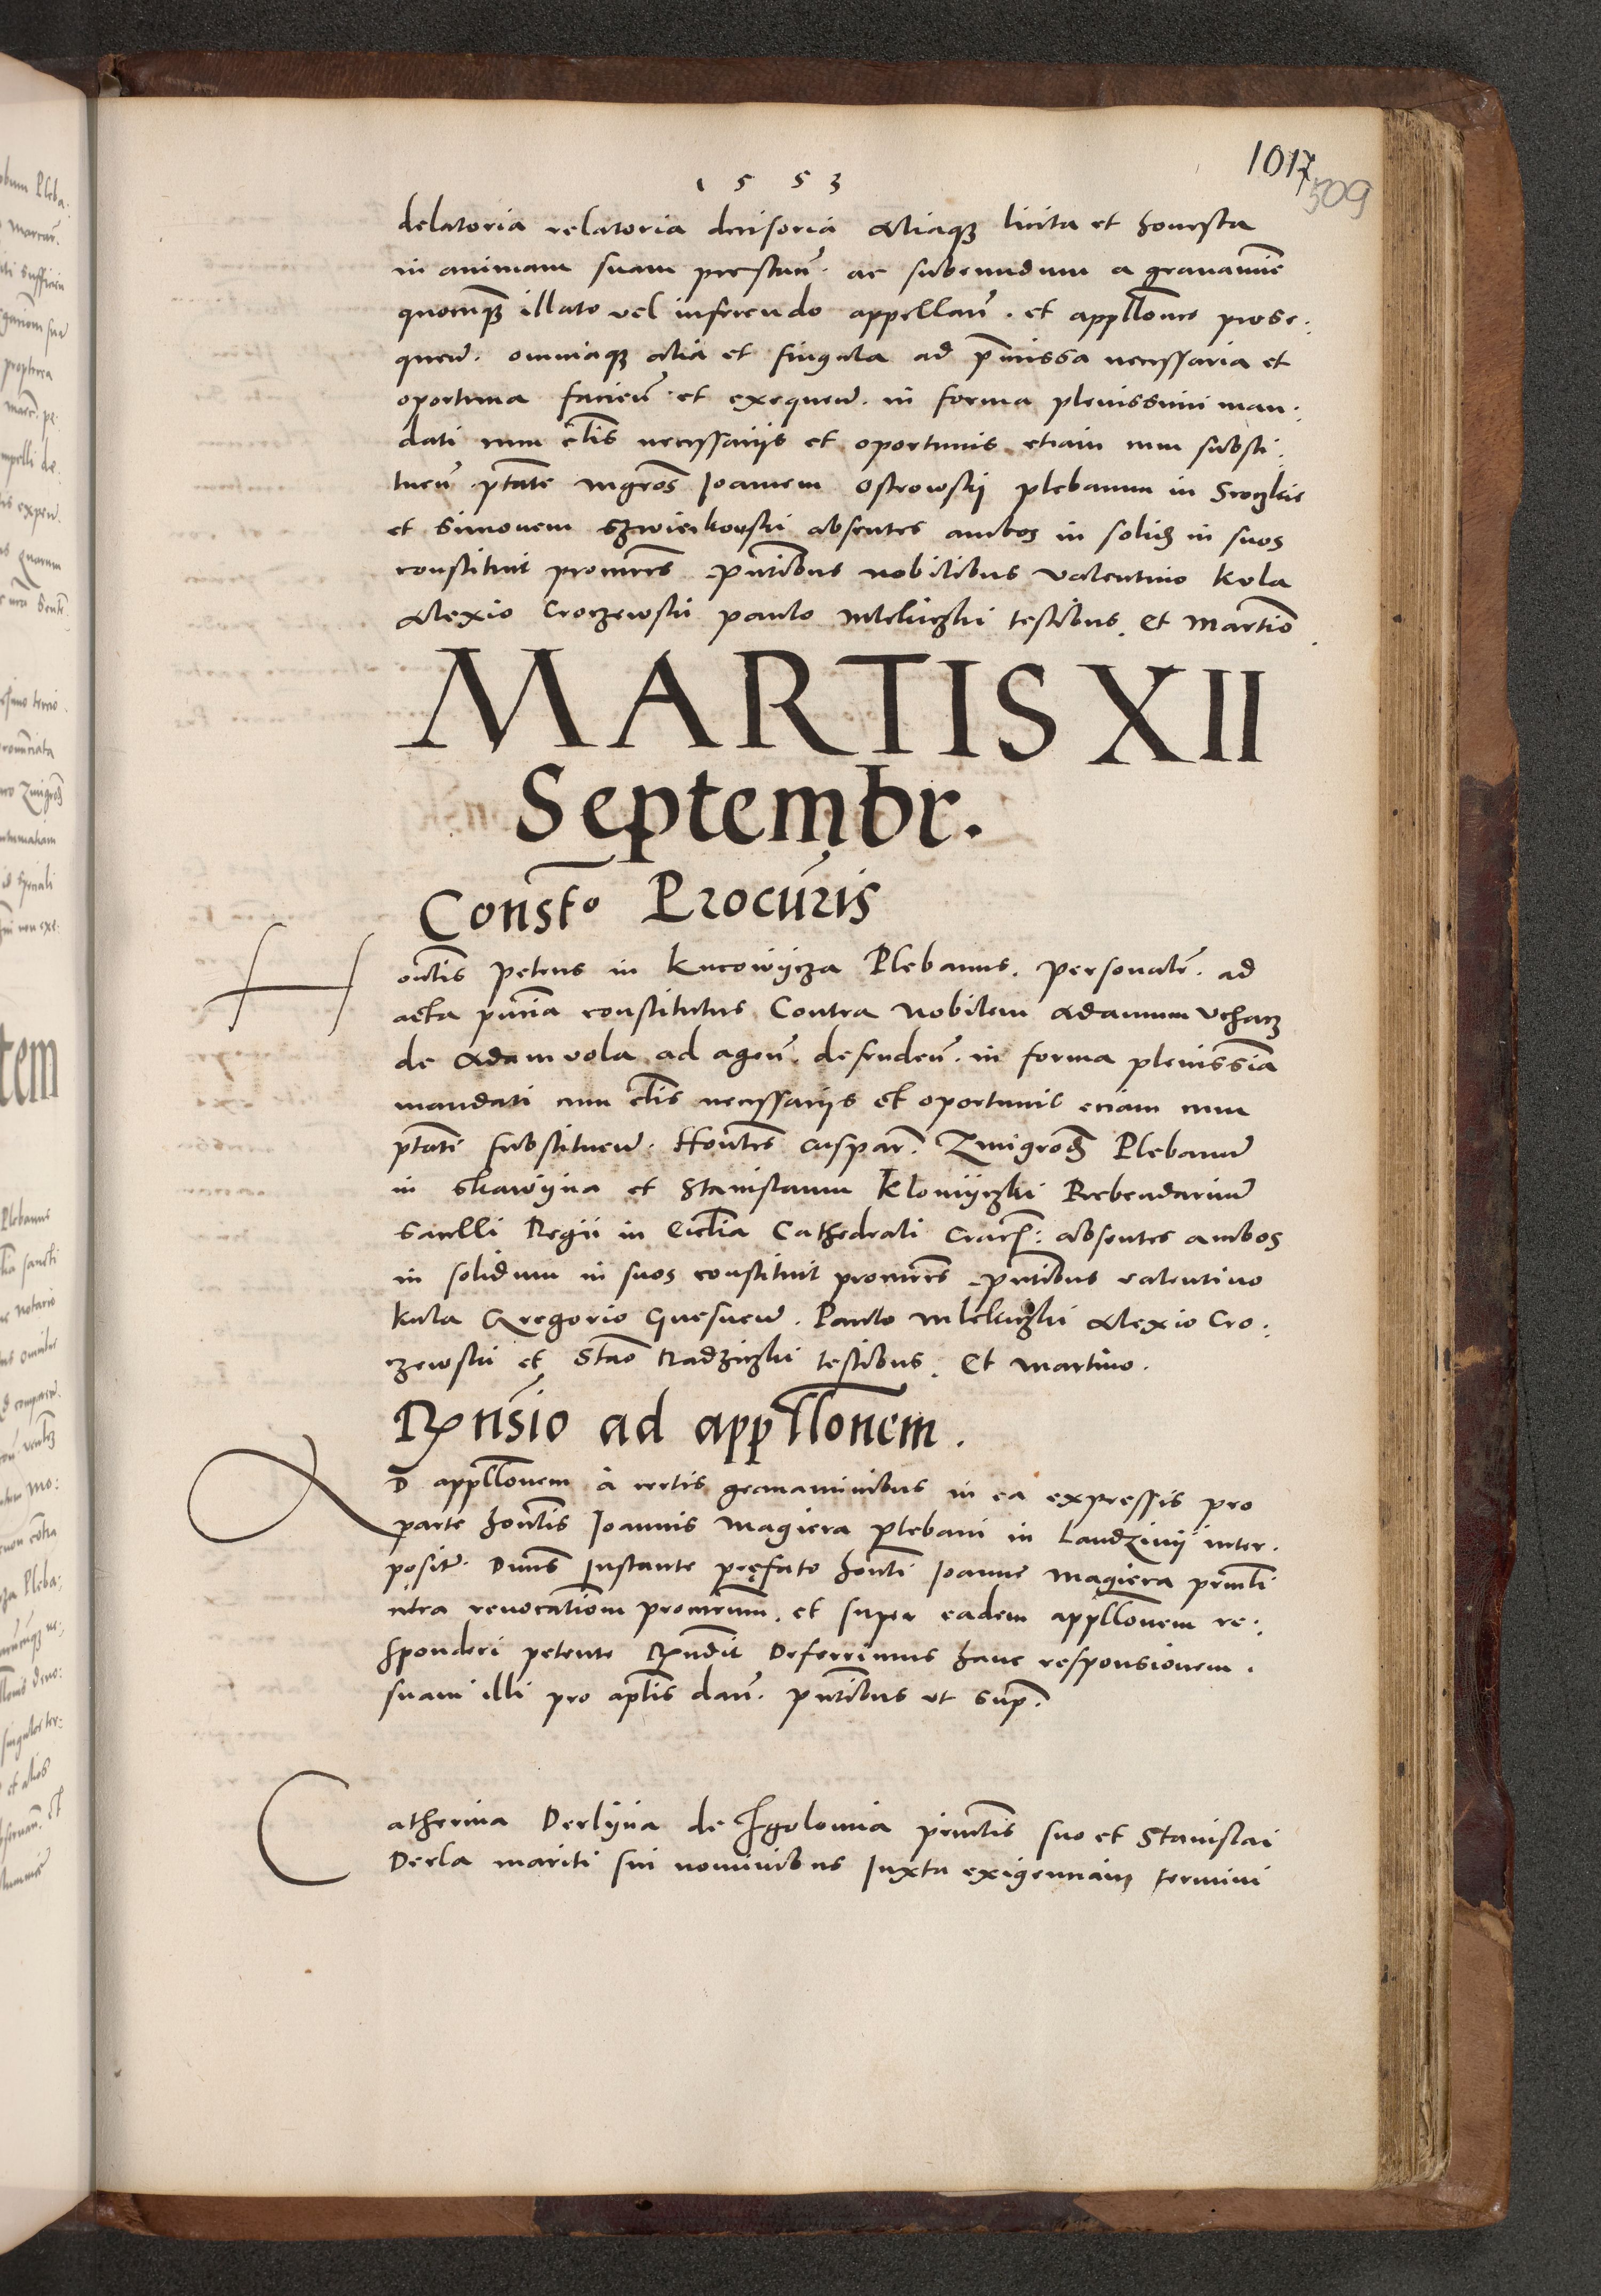 1553
1017
509
delatoria relatoria decisoria Aliaqꝫ licita et honesta
in animam suam prestañ. ac subeundum a grauamiñe
quocuqꝫ illato vel inferendo appellañ. et appłłones prose:
queñ. omniaqꝫ alia et singula ad p̃missa necessaria et
oportuna facieñ et exequeñ. in forma plenissimi man:
dati cum cl̃is necessariis et oportunis etiam cum substi:
tueñ ptãte mgr̃os Ioannem Ostrowskij plebanum in
et Simonem absentes ambos in solid in suos
constituit procur̃es pñtibus nobilibus valentino Kula
Alexio Croczewski paulo testibus. Et Martiño
MARTIS XII
Septembr.
Constᵒ Procuris
Honłis Petrus in Plebanus. personalr̃. ad
acta pñcia constitutus Contra Nobilem Adamum Vchacz
de Adamvola ad ageñ. defendeñ. in forma plenissĩa
mandati cum cl̃is necessariis et oportunis eciam cum
ptãte substitueñ. Honłes Caspar̃. Zmigrod Plebanũ
in Skawÿna et Stanislaum Prebendariũ
Sacelli Regii in Eccłia Cathedrali Cracõ: absentes ambos
in solidum in suos constituit procur̃es pñtibus valentino
Kula Gregorio Paulo Alexio Cro:
czewski et Stão testibus. Et Martino.
Rñsio ad appłłonem.
AD appłłonem à certis grauaminibus in ea expressis pro
parte honłis Ioannis Magiera Plebani in inter:
posit̃. Dñus Instante pręfato honłi Ioanne Magiera
citra reuocationem procur̃um. et super eadem appłłonem re:
sponderi petente Rñdit Deferrimus hanc responsionem.
suam illi pro aplĩs dañ. pñtibus vt sup̃.
Catherina Derlÿna de Igolomia suo et Stanislai
Derla mariti sui nominibus Iuxta exigenciam termini